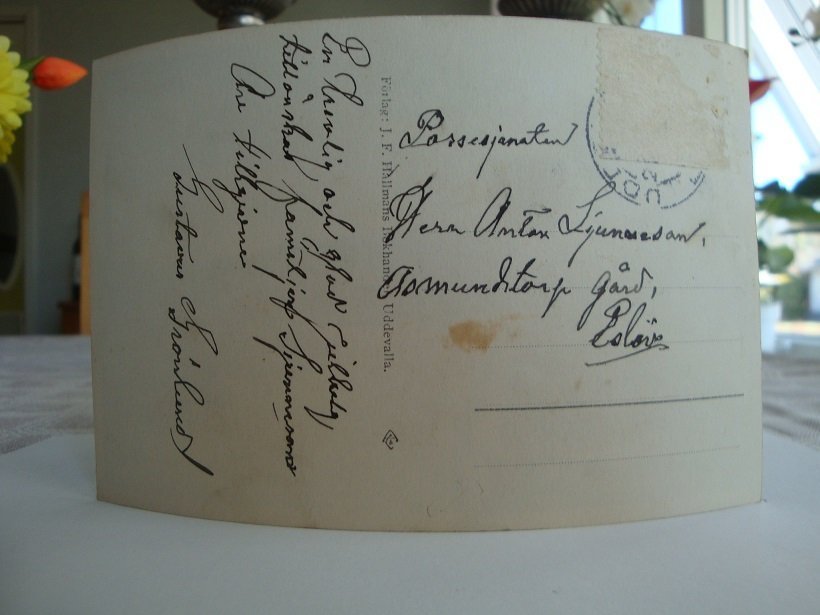 En trevlig och glad Julhelg,
tillönskas familjen Ljunnesons
Gustavus Grönlund
Förlag: J. F. Hallmans Bokhandel, Uddevalla.
Possesjonaten
Herr Anton Ljunneson,
Asmundstorp Gård,
Eslöv